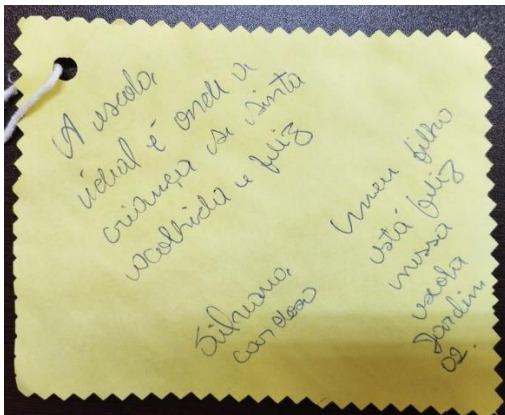 A escola
ideal é onde a
criança se sinta
acolhida e feliz
Silvana
Cardoso
meu filho
está feliz
nessa
escola
Jardim
02.